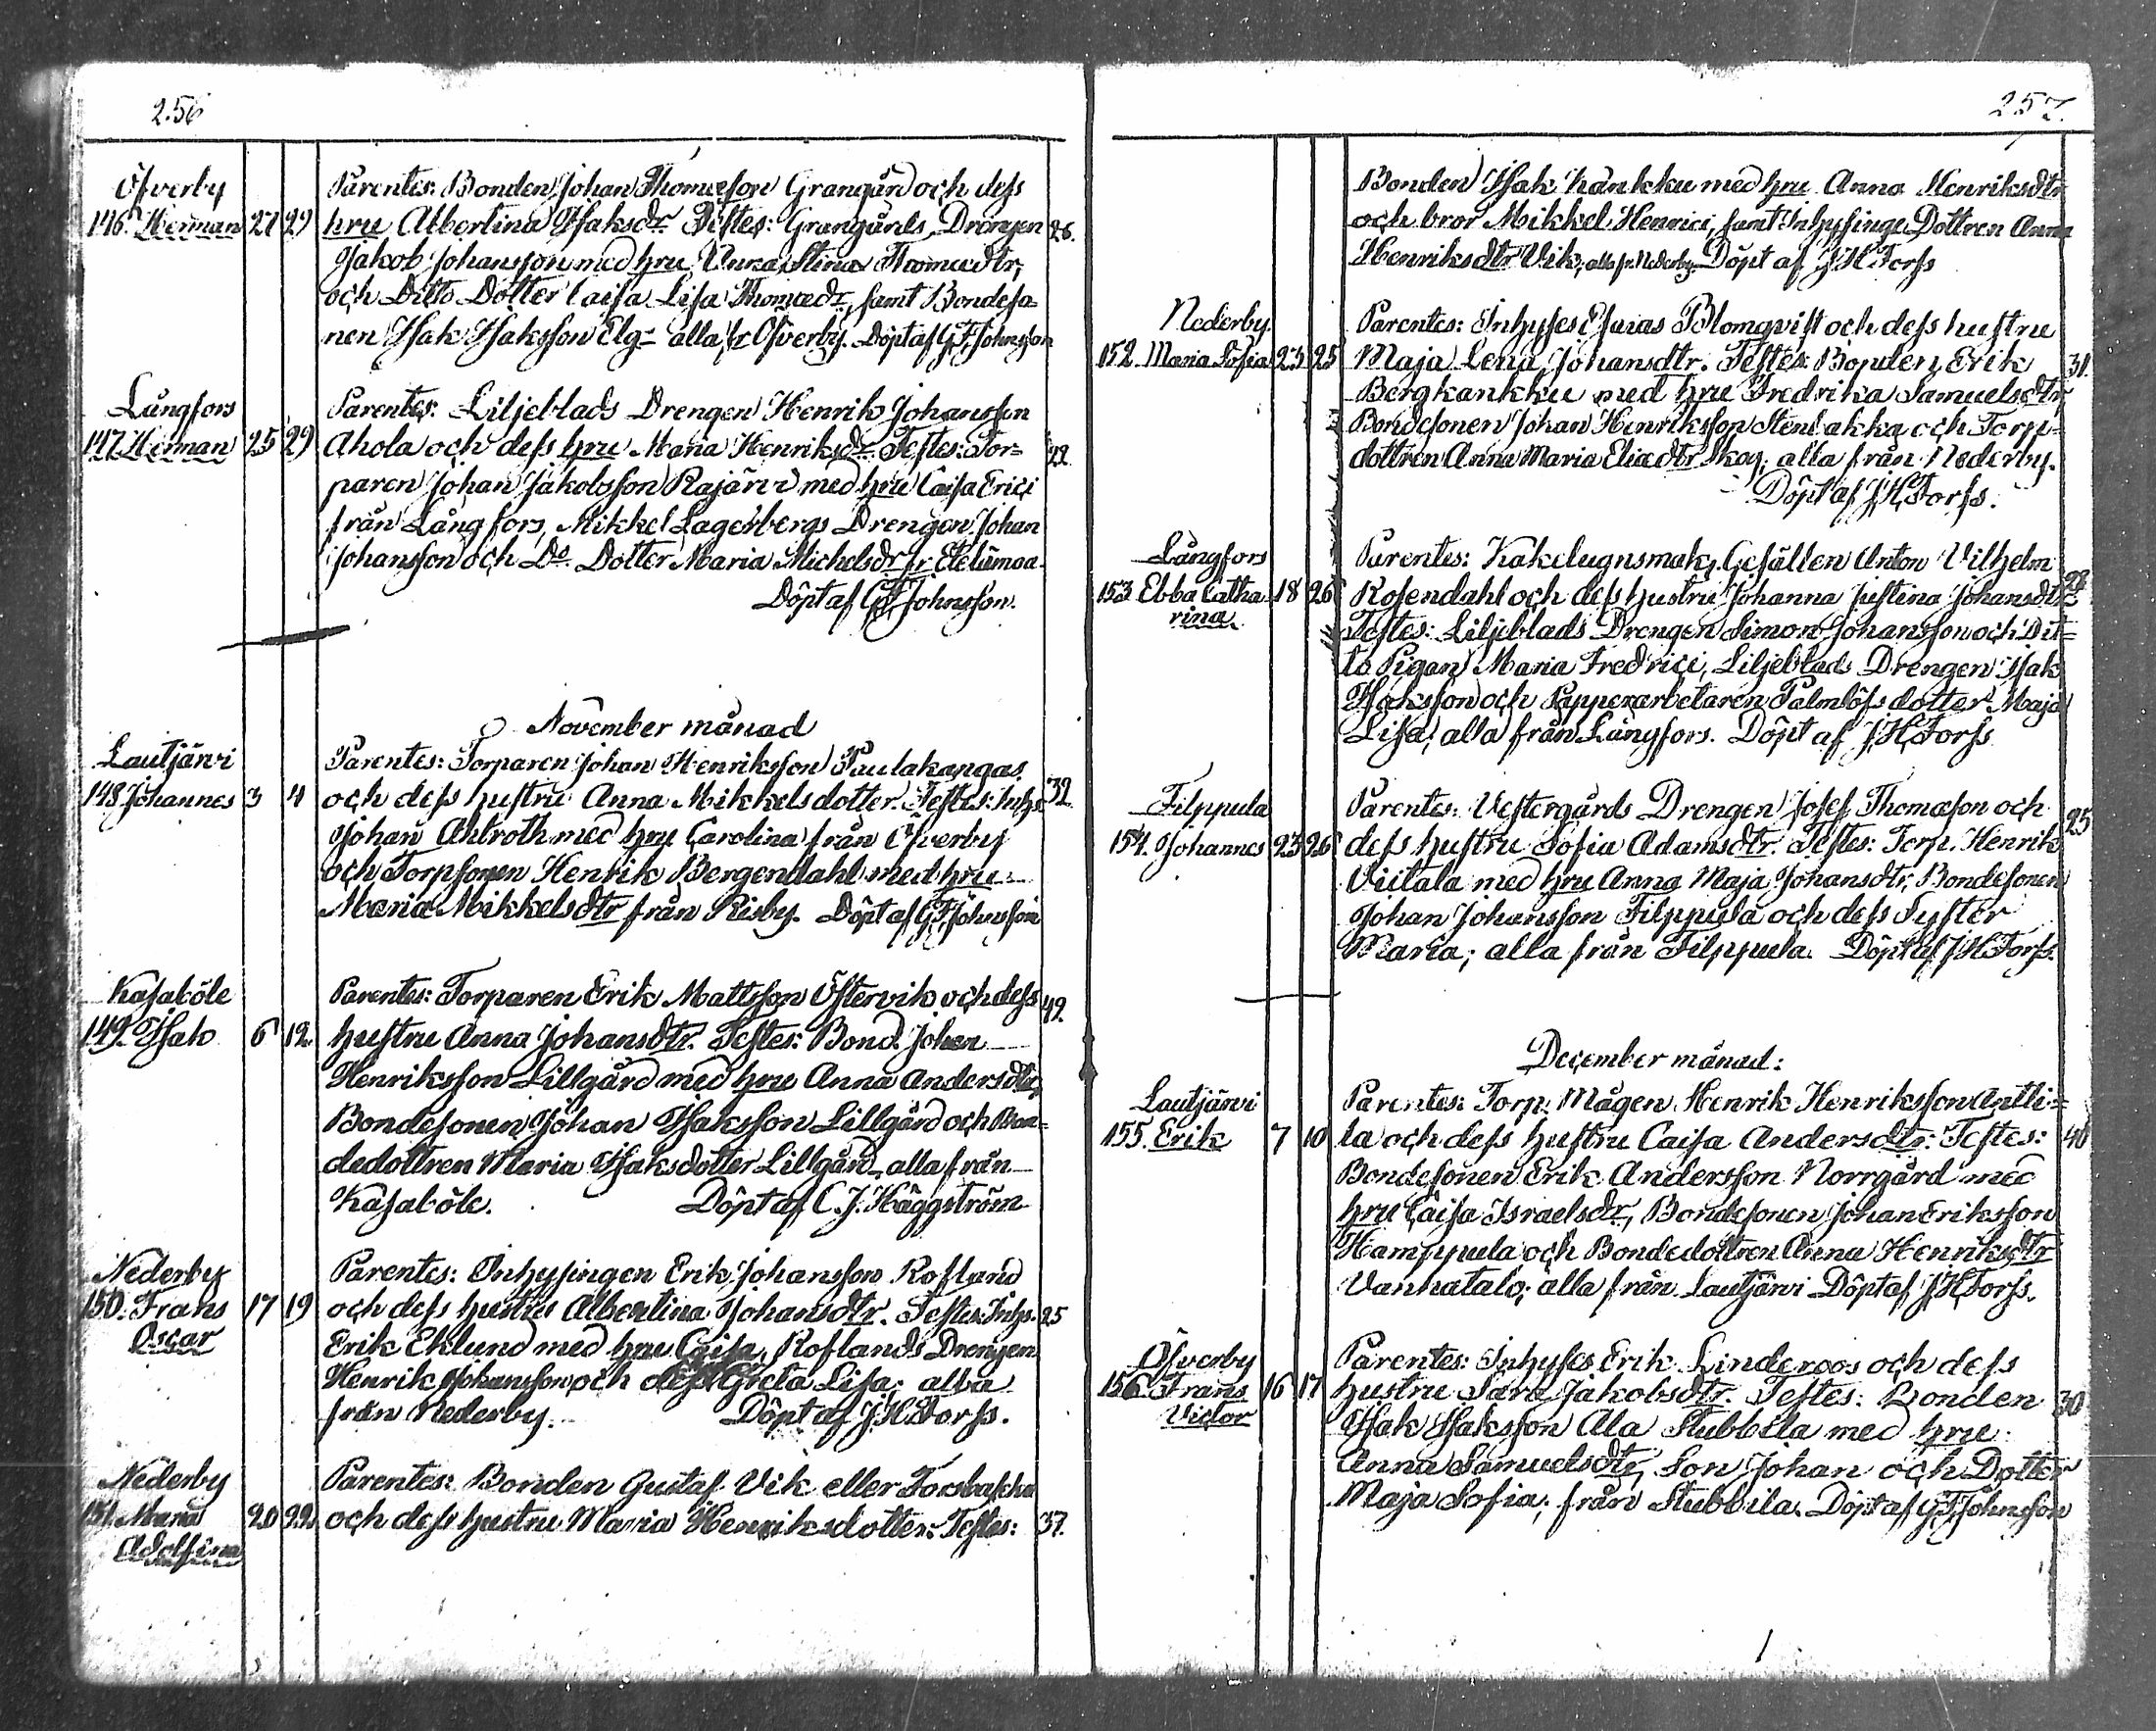 256
Öfverby
146. Herman 27 29
Parentes: Bonden Johan Thomæsson Grangård och dess
hru Albertina Isaksdr. Testes: Grangårds Drengen 26.
Jakob Johansson med hru Anna Stina Thomædtr,
och Ditto Dotter Caisa Lisa Thomædr, samt Bondeso=
nen Isak Isaksson Elg - alla fr Öfverby. Döpt af G.F. Johnsson
Långfors
147. Herman 25 29
Parentes: Liljeblads Drengen Henrik Johansson
Ahola och dess hru Maria Henriksdr. Testes: Tor=
paren Johan Jakobsson Rajärvi med hru Caisa Erici
från Långfors, Mikkel Lagerbergs Drengen Johan
Johansson och Do. Dotter Maria Michelsdr fr Etelämaa.
Döpt af G.F. Johnsson.
November månad
Lautjärvi
148. Johannes 3 4
Parentes: Torparen Johan Henriksson Paulakangas
och dess hustru Anna Mikkelsdotter. Testes: Inhs. 32
Johan Ahlroth med hru Carolina från Öfverby
och Torpsonen Henrik Bergendahl med hru
Maria Mikkelsdtr från Risby. Döpt af G.F. Johnsson
Kasaböle
149. Isak 6 12
Parentes: Torparen Erik Mattsson Östervik och dess 42.
hustru Anna Johansdtr. Testes: Bond. Johan
Henriksson Lillgård med hru Anna Andersdtr,
Bondesonen Johan Isaksson Lillgård och Bon=
dedottren Maria Isaksdotter Lillgård, alla från
Kasaböle. Döpt af C.J. Häggström
Nederby
150. Frans 17 19
Oscar
Parentes: Inhysingen Erik Johansson Rosland
och dess hustru Albertina Johansdtr. Testes: Inhs. 25
Erik Eklund med hru Caisa, Roslands Drengen
Henrik Johansson och dess Greta Lisa; alla
från Nederby. Döpt af J.H. Forss.
Nederby
151. Maria 20 22
Adolfina
Parentes: Bonden Gustaf Vik eller
och dess hustru Maria Henriksdotter. Testes: 37.
257.
Bonden Isak Kankku med hru Anna Henriksdtr
och bror Mikkel Henrici, samt Inhysinge Dottren Anna
Henriksdtr Vik, alla fr. Nederby. Döpt af J.H. Forss
Nederby
152. Maria Sofia 23 25
Parentes: Inhyses Esaias Blomqvist och dess hustru
Maja Lena Johansdtr. Testes: Bonden Erik 31.
Bergkankku med hru Fredrika Samuelsdtr
Bondesonen Johan Henriksson Stenbakka och Torp=
dottren Anna Maria Eliædtr Skog; alla från Nederby.
Döpt af J.H. Forss.
Långfors
153. Ebba Catha 18 26
rina
Parentes: Kakelugnsmak. Gesällen Anton Vilhelm
Rosendahl och dess hustru Johanna Justina Johansdtr 28
Testes: Liljeblads Drengen Simon Johansson och Dit=
to Pigan Maria Fredrici, Liljeblads Drengen Isak
Isaksson och Papperarbetaren Palmlöfs dotter Maja
Lisa, alla från Långfors. Döpt af J.H. Forss
Filppula
154. Johannes 23 26
Parentes: Vestergårds Drengen Josef Thomæson och 25
dess hustru Sofia Adamsdtr. Testes: Torp. Henrik
Viitala med hru Anna Maja Johansdtr, Bondesonen
Johan Johansson Filppula och dess Syster
Maria; alla från Filppula. Döpt af J.H. Forss.
December månad:
Lautjärvi
155. Erik 7 10
Parentes: Torp. Mågen Henrik Henriksson Antti=
la och dess hustru Caisa Andersdtr. Testes: 40
Bondesonen Erik Andersson Norrgård med
hru Caisa Israelsdr, Bondesonen Johan Eriksson
Hamppula och Bondedottren Anna Henriksdtr
Vanhatalo; alla från Lautjärvi Döpt af J.H. Forss.
Öfverby
156. Frans 16 17
Victor
Parentes: Inhyses Erik Linderoos och dess
hustru Sara Jakobsdtr. Testes: Bonden 30
Isak Isaksson Ala Stubbila med hru
Anna Samuelsdtr, Son Johan och Dotter
Maja Sofia; från Stubbila. Döpt af G.F. Johnsson